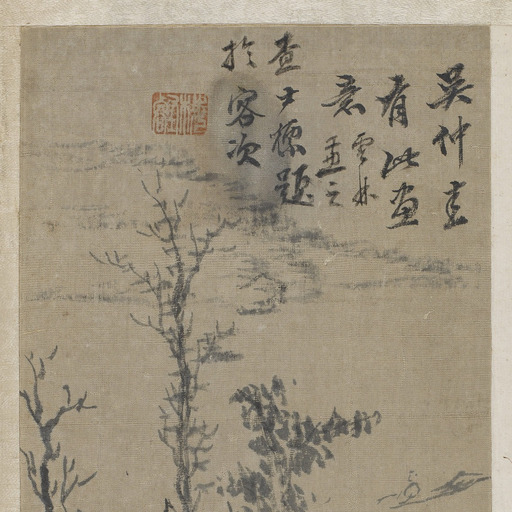 吳仲圭
有此畫
意
雲林
之
查士標題
於客次